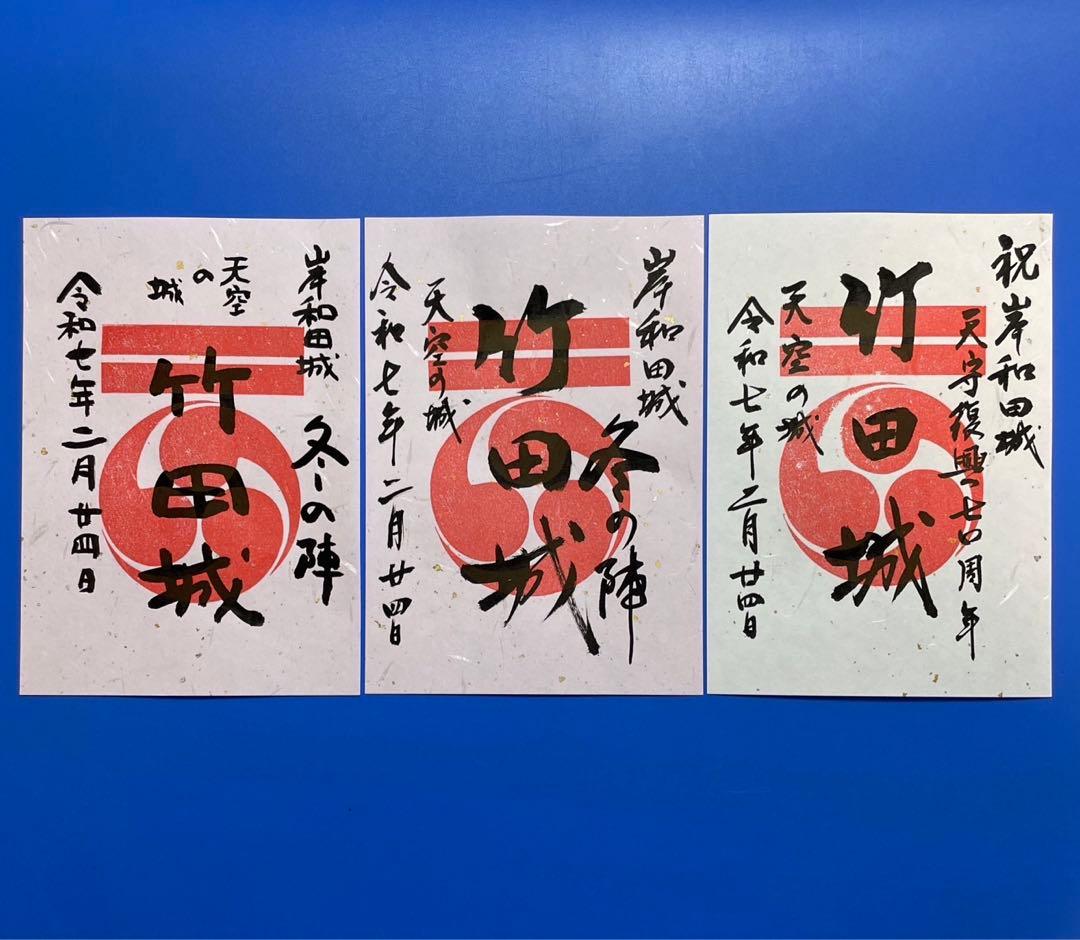 岸和田城 冬の陣
天空
の
城
竹田城
令和七年二月廿四日
岸和田城
冬の陣
竹田城
天空の城
令和七年二月廿四日
祝岸和田城
天守復興七〇周年
竹田城
天空の城
令和七年二月廿四日